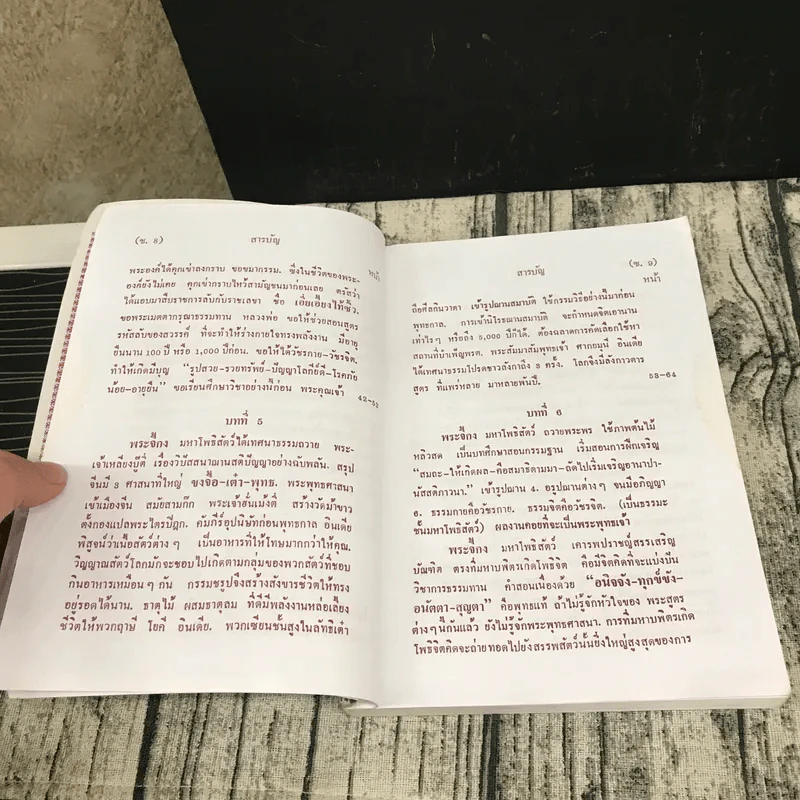 (ซ. 8)
สารบัญ
หน้า
พระองค์ได้คุกเข่าลงกราบ ขอขมากรรม. ซึ่งในชีวิตของพระ-
องค์ยังไม่เคย คุกเข่ากราบไหว้สามัญชนมาก่อนเลย ตรัสว่า
ได้แอบมาสืบราชการลับกับราชเลขา ชื่อ เอี่ยเอี้ยงไท้ซิ้ว.
ขอพระเมตตากรุณาธรรมทาน หลวงพ่อ ขอให้ช่วยสอนสูตร
รหัสลับของสวรรค์ ที่จะทำให้ร่างกายใจทรงพลังงาน มีอายุ
ยืนนาน 100 ปี หรือ 1,000 ปีก่อน. ขอให้ได้วัชรกาย-วัชรจิต.
ทำให้เกิดมีบุญ “รูปสวย-รวยทรัพย์-ปัญญาโลกีย์ดี-โรคภัย
น้อย-อายุยืน” ขอเรียนศึกษาวิชาอย่างนี้ก่อน พระคุณเจ้า 42-53
บทที่ 5
พระจี้กง มหาโพธิสัตว์ได้เทศนาธรรมถวาย พระ-
เจ้าเหลียงบู๊ตี่ เรื่องวิปัสสนาญาณสติปัญญาอย่างฉับพลัน. สรุป
จีนมี 3 ศาสนาที่ใหญ่ ขงจื้อ-เต๋า-พุทธ. พระพุทธศาสนา
เข้าเมืองจีน สมัยสามก๊ก พระเจ้าฮั่นเม้งตี้ สร้างวัดม้าขาว
ตั้งกองแปลพระไตรปิฎก. คัมภีร์อุปนิษัทก่อนพุทธกาล อินเดีย
พิสูจน์ว่าเนื้อสัตว์ต่างๆ เป็นอาหารที่ให้โทษมากกว่าให้คุณ.
วิญญาณสัตว์โลกมักจะชอบไปเกิดตามกลุ่มของพวกสัตว์ที่ชอบ
กินอาหารเหมือนๆ กัน กรรมชรูปจึงสร้างสังขารชีวิตให้ทรง
อยู่รอดได้นาน. ธาตุไม้ ผสมธาตุลม ที่ดีมีพลังงานหล่อเลี้ยง
ชีวิตให้พวกฤาษี โยคี อินเดีย. พวกเซียนชั้นสูงในลัทธิเต๋า
สารบัญ
(ซ. 9)
หน้า
ถือศีลกินวาตา เข้ารูปฌานสมาบัติ ใช้กรรมวิธีอย่างนี้มาก่อน
พุทธกาล. การเข้านิโรธฌานสมาบัติ จะกำหนดจิตเอานาน
เท่าไรๆ หรือถึง 5,000 ปีก็ได้. ต้องฉลาดการคัดเลือกใช้หา
สถานที่บำเพ็ญพรต. พระสัมมาสัมพุทธเจ้า ศากยมุนี อินเดีย
ได้เทศนาธรรมโปรดชาวลังกาถึง 3 ครั้ง. โลกจึงมีลังกาวตาร
สูตร ที่แพร่หลาย มาหลายพันปี. 53-64
บทที่ 6
พระจี้กง มหาโพธิสัตว์ ถวายพระพร ใช้ภาพต้นไม้
หลิวสด เป็นบทศึกษาสอนกรรมฐาน เริ่มสอนการฝึกเจริญ
“สมถะ-ให้เกิดผล-คือสมาธิตามมา-ถัดไปเริ่มเจริญอานาปา-
นัสสติภาวนา.” เข้ารูปฌาน 4. อรูปฌานต่างๆ จนมีอภิญญา
6. ธรรมกายคือวัชรกาย. ธรรมจิตคือวัชรจิต. (เป็นธรรมะ
ชั้นมหาโพธิสัตว์) ผลงานคอยที่จะเป็นพระพุทธเจ้า
พระจี้กง มหาโพธิสัตว์ เคารพปราชญ์สรรเสริญ
บัณฑิต ตรงที่มหาบพิตรเกิดโพธิจิต คือมีจิตคิดที่จะแบ่งปัน
วิชาการธรรมทาน คำสอนเนื่องด้วย “อนิจจัง-ทุกข์ขัง-
อนัตตา-สุญตา” คือพุทธแท้ ถ้าไม่รู้จักหัวใจของ พระสูตร
ต่างๆ นี้กันแล้ว ยังไม่รู้จักพระพุทธศาสนา. การที่มหาบพิตรเกิด
โพธิจิตคิดจะถ่ายทอดไปยังสรรพสัตว์นั้นยิ่งใหญ่สูงสุดของการ